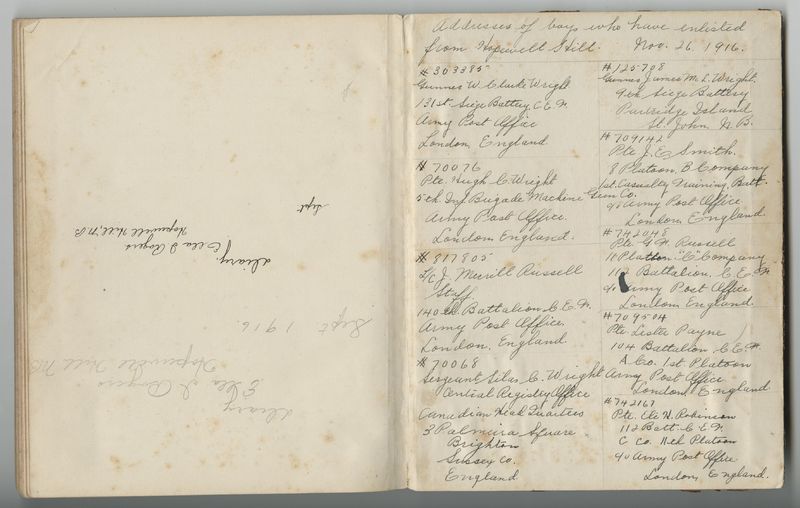 Sept
Diary
of Ella I Rogers
Hopewell Hill, N.B.
Sept 1916.
Diary
Ella I Rogers
Hopewell Hill NB
Addresses of boys who have enlisted
from Hopewell Hill. Nov. 26, 1916.
#303385
Gunner W. Clarke Wright
131st Siege Battery, C.E.F.
Army Post Office
London, England
# 70076
Pte. Hugh C. Wright
5th Inf Brigade Machine Gun Co.
Army Post Office.
London England.
# 817805
L/C J. Merrill Russell
Staff.
140th Battalion C.E.F.
Army Post Office.
London, England
# 70068
Sergeant Silas C. Wright
Central Registry Office
Canadian Head Quarters
3 Palmeira Square
Brighton
Sussex Co.
England
#125708
Gunner James M. L. Wright.
9th Siege Battery
Partridge Island
St. John N.B.
# 709142
Pte J. E. Smith.
8 Platoon, B Company
1st Casualty Training Batt.
c/o Army Post Office
London England
# 742048
Pte G. F. Russell
11 Platoon "C" Company
112 Battalion, C.E.F.
c/o Army Post Office
London England
# 709504
Pte Lester Payne
104 Battalion C.E.F.
A Co. 1st Platoon
Army Post Office
London, England
# 742167
Pte. H. Robinson
112 Batt. C.E.F.
C Co. 11th Platoon
c/o Army Post Office
London, England.